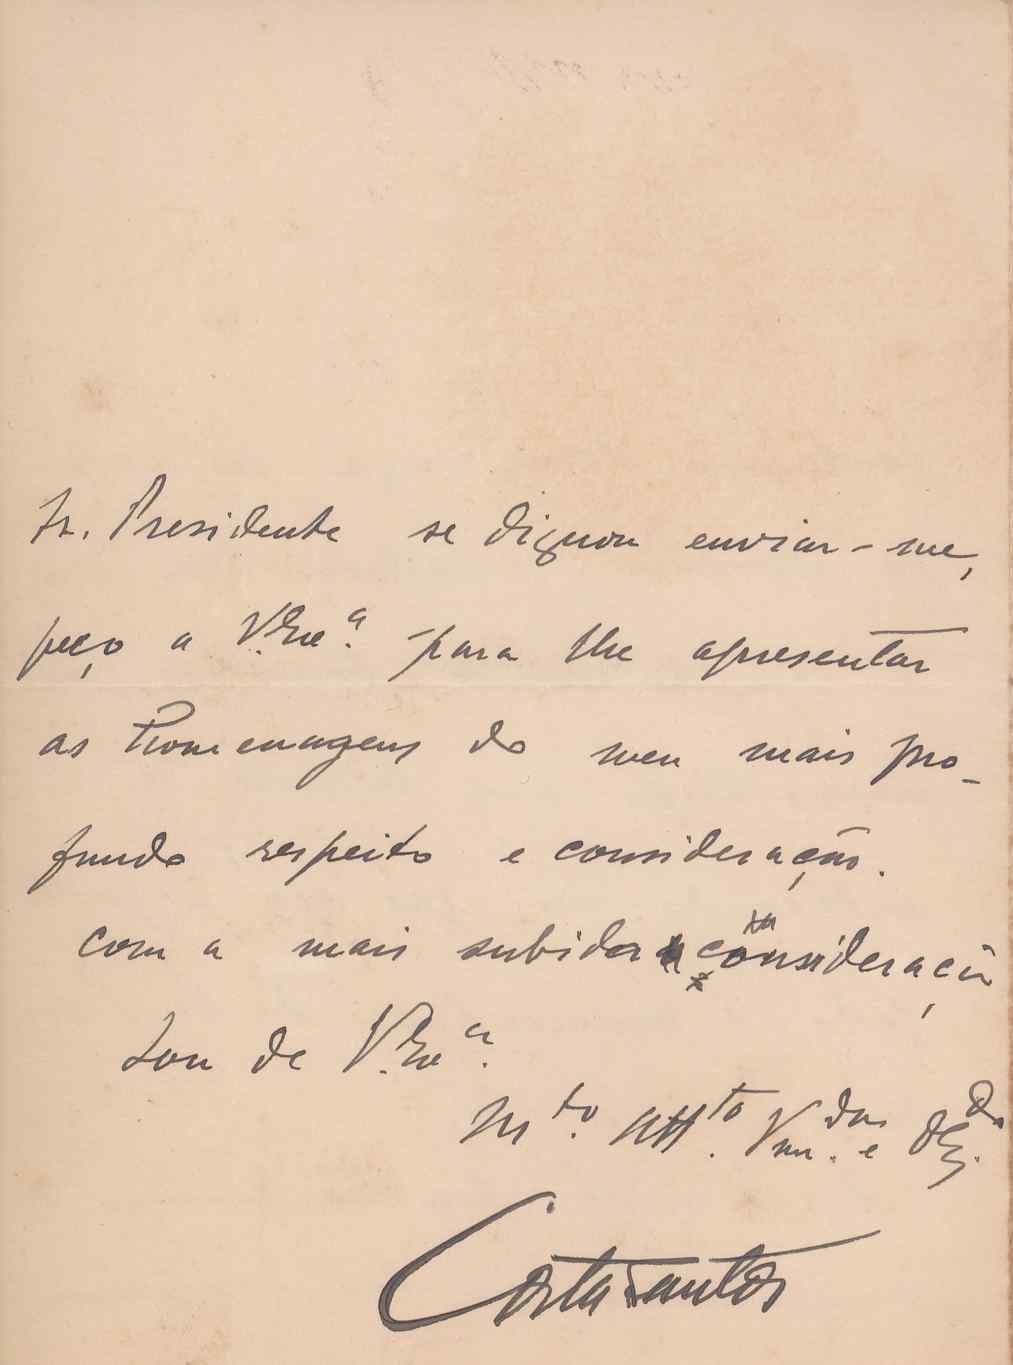 Sr. Presidente se dignou enviar-me,
peço a V. Exª. para lhe apresentar
as homenagens do meu mais pro-
fundo respeito e consideração.
Com a mais subida consideração
Sou de V. Exª.
Mto. Attto. Vendor. e Obgdo.
Costa Santos